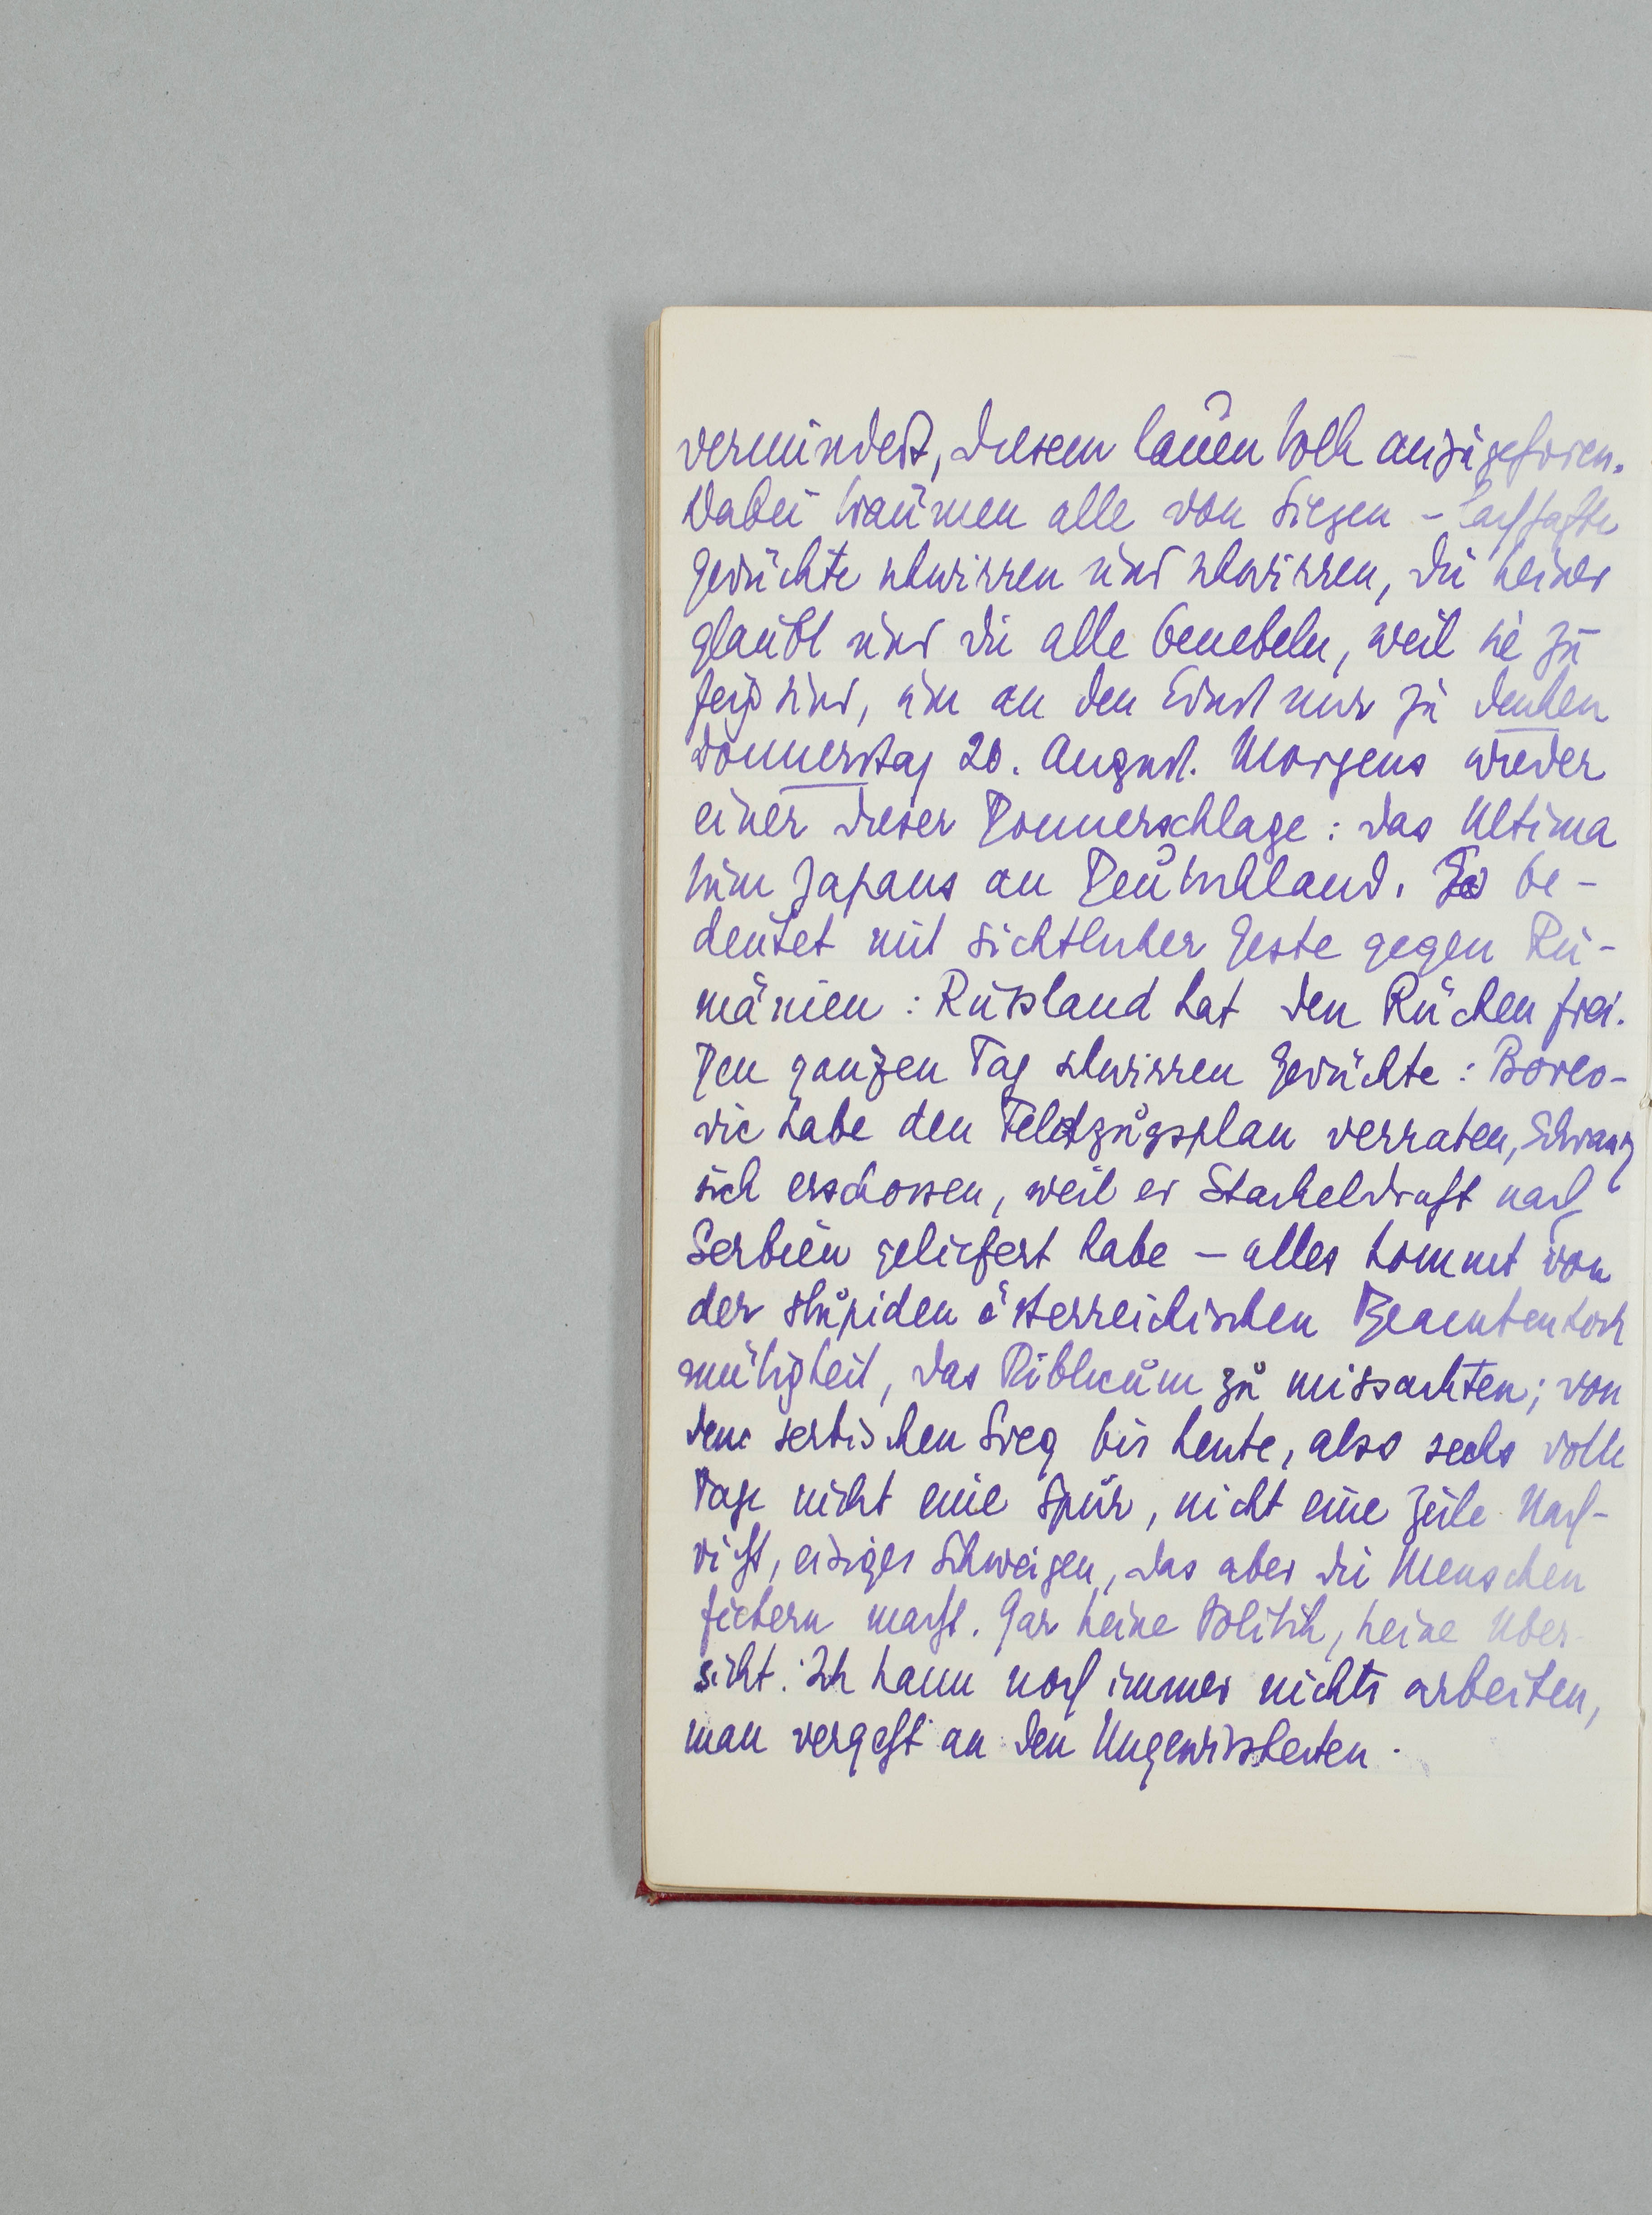 vermindert, diesem lauen Volk anzugehören.
Dabei träumen alle von Siegen – lachhafte
Gerüchte schwirren und schwirren, die keiner
glaubt und die alle benebeln, weil sie zu
feig sind, um an den Ernst nur zu denken
Donnerstag 20. August. Morgens wieder
einer dieser Donnerschläge: das Ultima
tum Japans an Deutschland. Es be-
deutet mit sichtlicher Geste gegen Ru-
mänien: Russland hat den Rücken frei.
Den ganzen Tag schwirren Gerüchte: Boreo-
vic habe den Feldzugsplan verraten, Schwarz
sich erschossen, weil er Stacheldraht nach
Serbien geliefert habe – alles kommt von
der stupiden österreichischen Beamtenhoch
mütigkeit, das Publicum zu missachten; von
dem serbischen Sieg bis heute, also sechs volle
Tage nicht eine Spur, nicht eine Zeile Nach-
richt, eisiges Schweigen, das aber die Menschen
fiebern macht. Gar keine Politik, keine Über
sicht. Ich kann noch immer nichts arbeiten,
man vergeht an den Ungewissheiten.